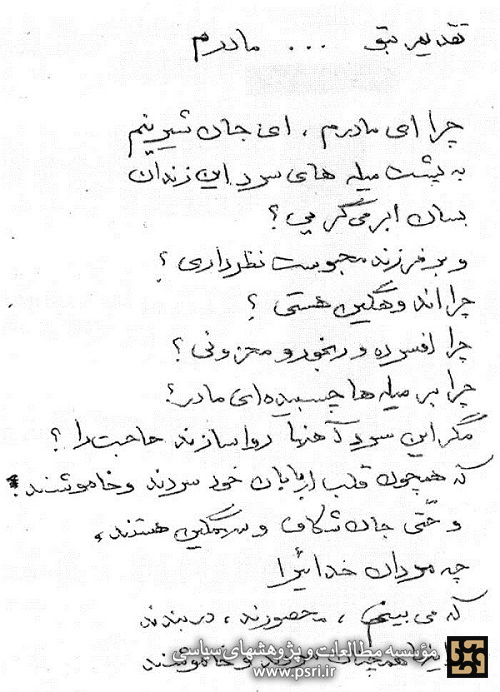 تقدیم بتو ... مادرم
چرا ای مادرم ، ای جان شیرینم
به پشت میله های سرد این زندان
بسان ابر می‌گریی ؟
و بر فرزند محبوست نظر داری ؟
چرا اندوهگین هستی ؟
چرا افسرده و رنجور و محزونی ؟
چرا بر میله ها چسبیده‌ای مادر؟
مگر این سرد آهنها روا سازند حاجت را ؟
که همچون قلب اربابان خود سردند و خاموشند؟
و حتی جان شکاف و سهمگین هستند .
چه مردان خدائی را
که می بینم ، محصورند ، در بندند
همچنان سردند و خاموشند
مؤسسه مطالعات و پژوهشهای سیاسی
www.psri.ir